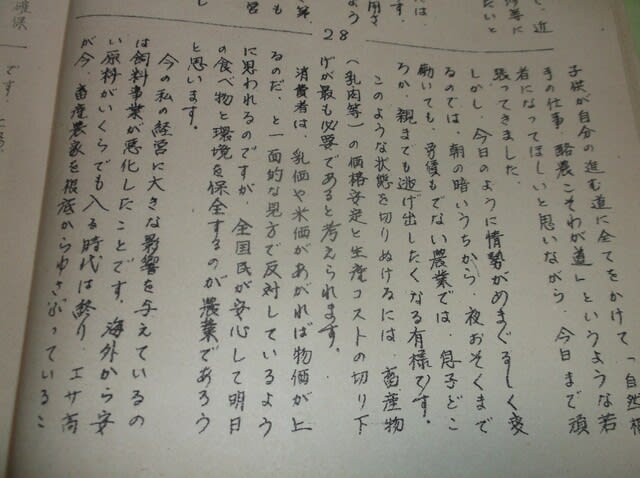 近
等に
たいと
には
す。
用さ
よう
営
も
確保
です。
28
子供が自分の進む道に全てをかけて「自然相
手の仕事、酪農こそわが道」というような若
者になってほしいと思いながら、今日まで頑
張ってきました。
しかし、今日のように情勢がめまぐるしく変
るのでは、朝の暗いうちから、夜おそくまで
働いても、もでない農業では、息子どこ
ろか、親までも逃げ出したくなる有様です。
このような状態を切りぬけるには、畜産物
(乳肉等)の価格安定と生産コストの切り下
げが最も必要であると考えられます。
消費者は、乳価や米価があがれば物価が上
るのだ、と一面的な見方で反対しているよう
に思われるのですが、全国民が安心して明日
の食べ物と環境を保全するのが農業であろう
と思います。
今の私の経営に大きな影響を与えているの
は飼料事業が悪化したことです。海外から安
い原料がいくらでも入る時代は終り、エサ高
が今、畜産農家を根底からゆさぶっているこ